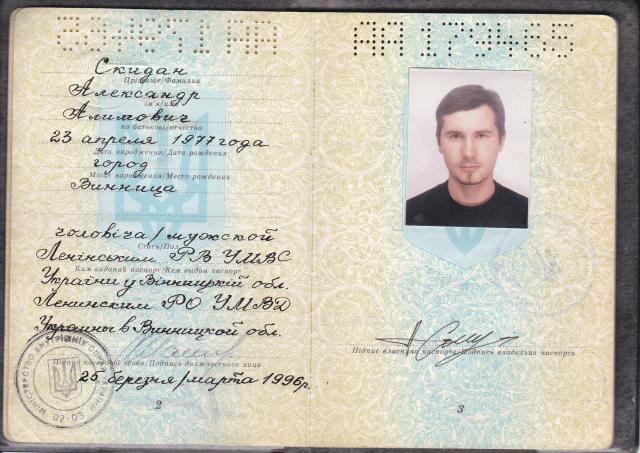 Скидан
Прізвище/Фамилия
Александр
ім'я/имя
Алимович
по батькові/отчество
23 апреля 1977 года
Дата народження/Дата рождения
город
Місце народження/Место рождения
Винница
чоловіча/мужской
Стать/Пол
Ленінським РВ УМВС
Ким виданий паспорт/Кем выдан паспорт
України у Вінницькій обл.
Ленинским РО УМВД
Украины в Винницкой обл.
Підпис посадової особи/Подпись должностного лица
25 березня/марта 1996р.
2
АА 179465
Підпис власника паспорта/Подпись владельца паспорта
3